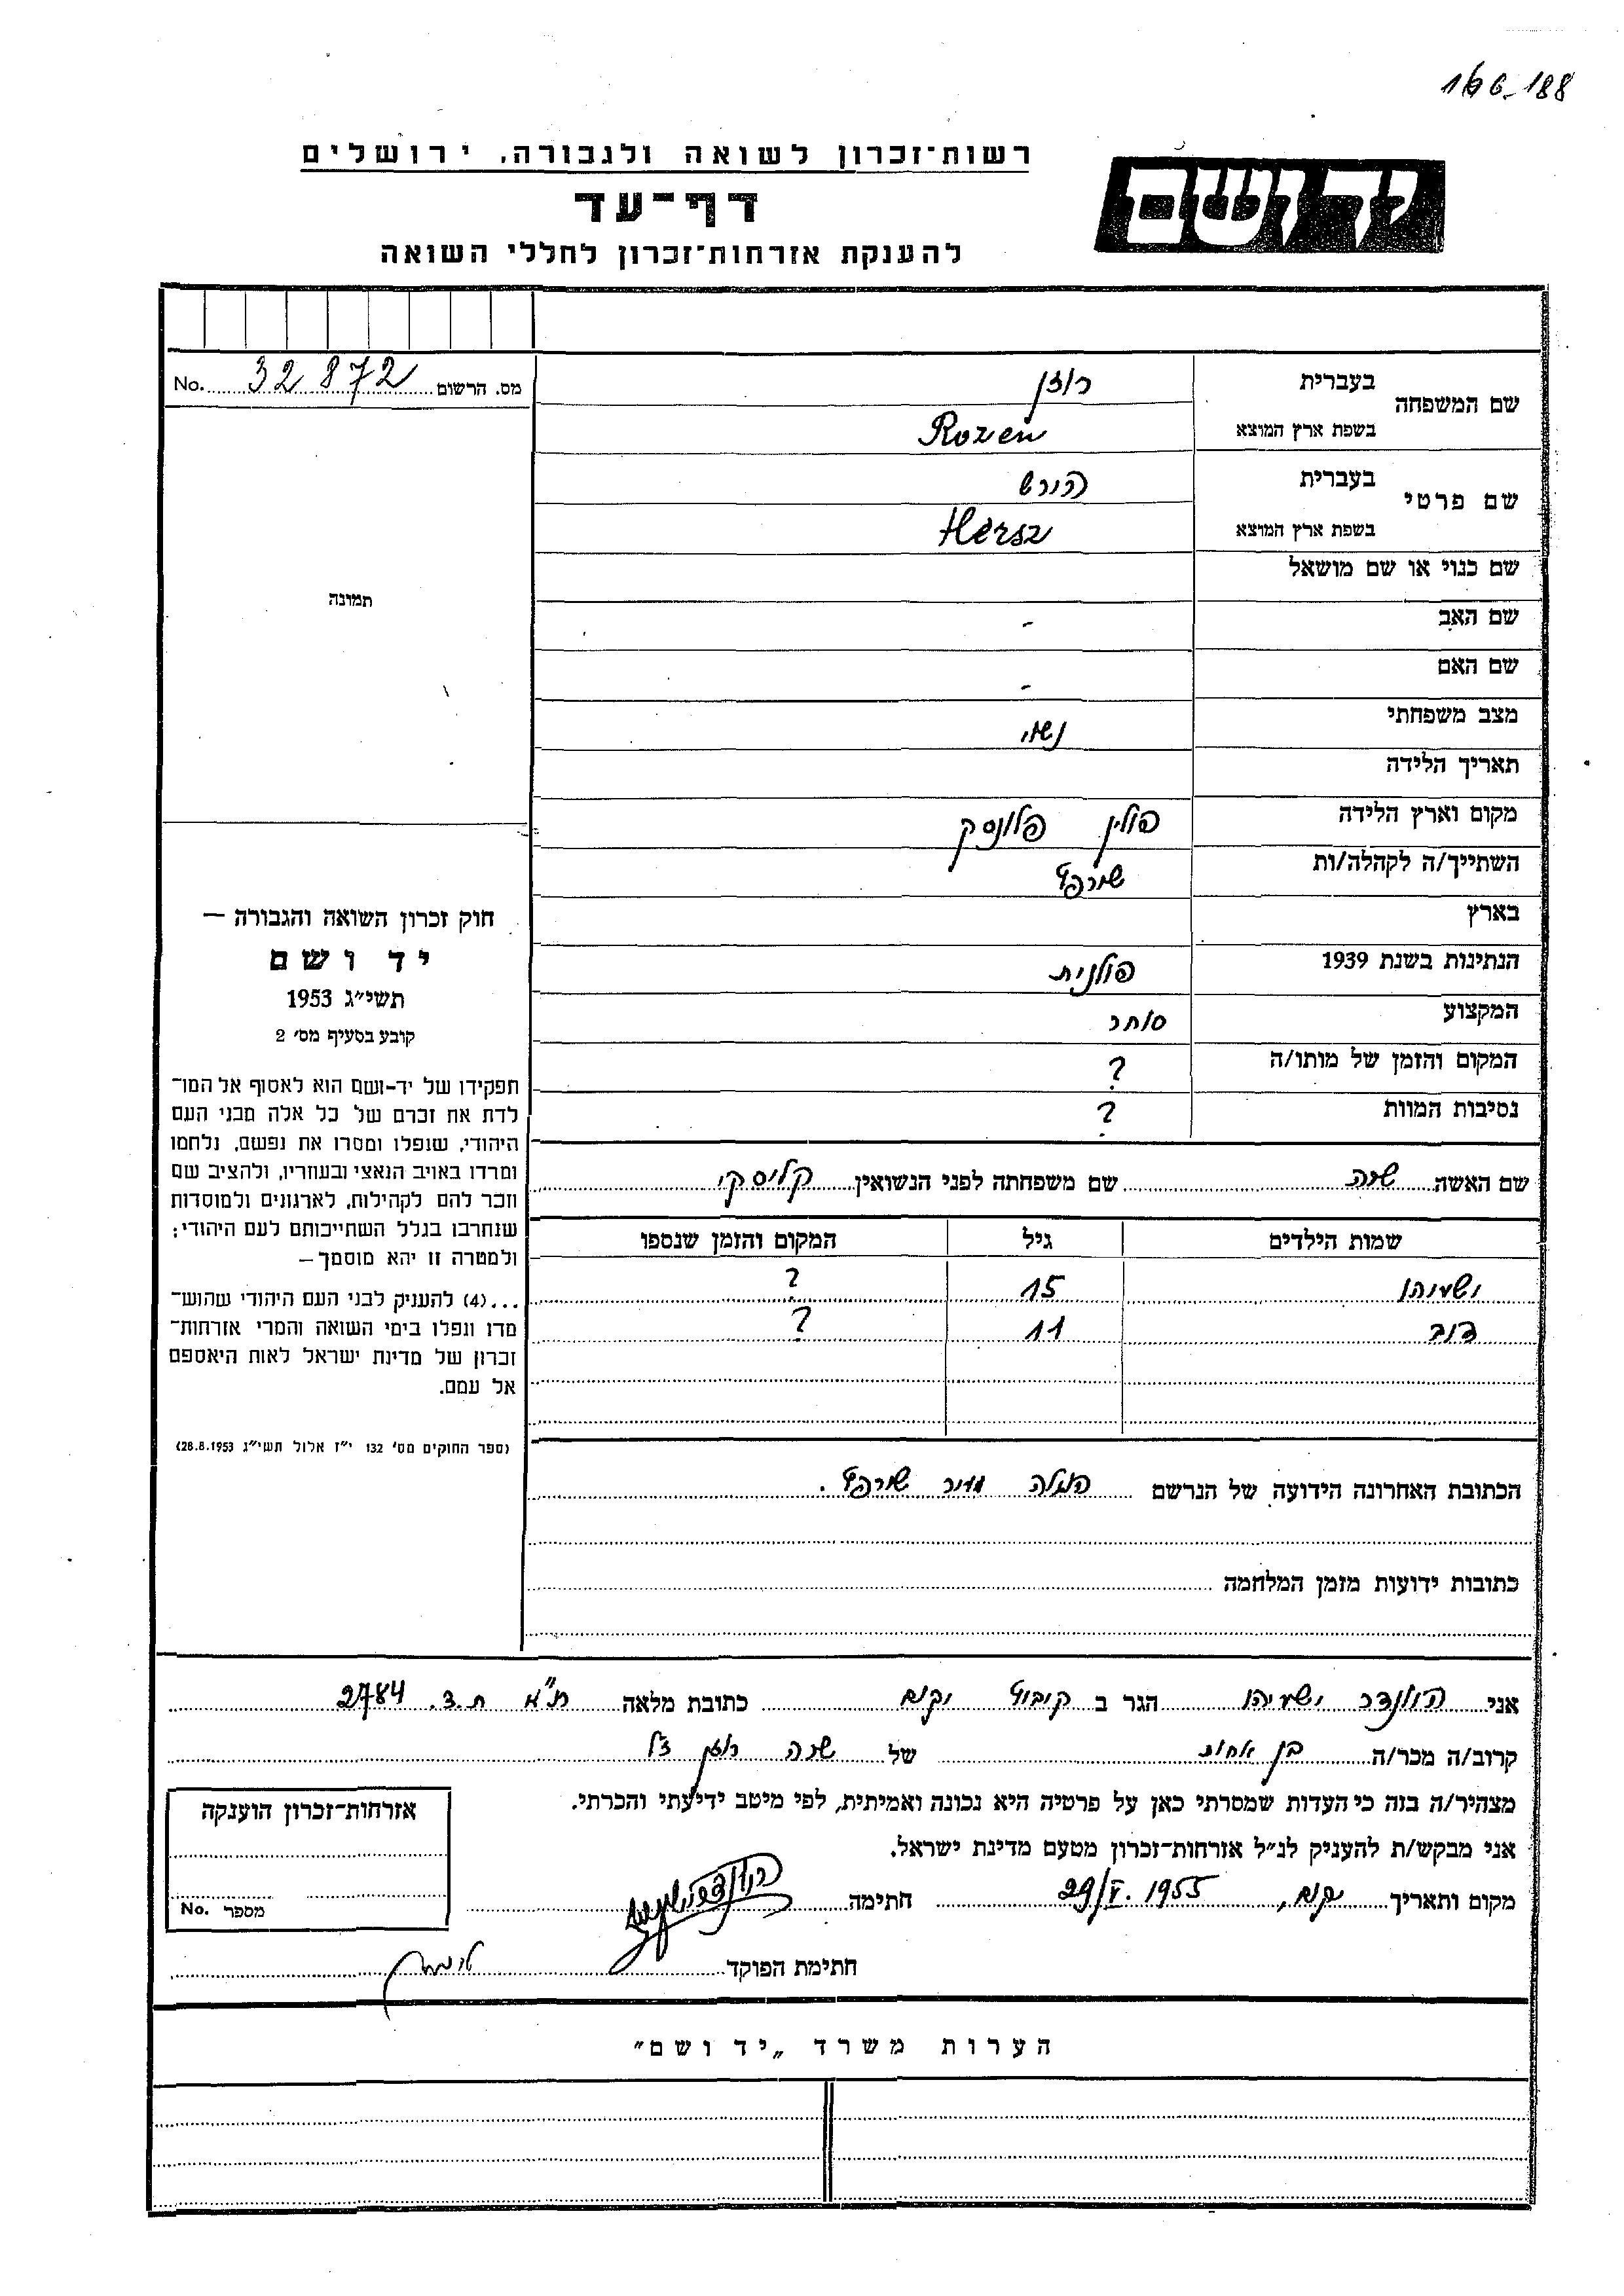 166-188
רשות־זכרון לשואה ולגבורה, ירושלים
ידושם
דף־עד
להענקת אזרחות־זכרון לחללי השואה
מס. הרשום 32872 No.
שם המשפחה
בעברית רוזן
בשפת ארץ המוצא Rozen
שם פרטי
בעברית הורש
בשפת ארץ המוצא Hersz
שם כנוי או שם מושאל
שם האב -
שם האם -
מצב משפחתי נשוי
תאריך הלידה
מקום וארץ הלידה פולין פלונסק
השתייך/ה לקהלה/ות
בארץ
הנתינות בשנת 1939 פולנית
המקצוע סוחר
המקום והזמן של מותו/ה ?
נסיבות המוות ?
תמונה
חוק זכרון השואה והגבורה —
יד ושם
תשי״ג 1953
קובע בסעיף מס׳ 2
תפקידו של יד-ושם הוא לאסוף אל המו־
לדת את זכרם של כל אלה מבני העם
היהודי, שנפלו ומסרו את נפשם, נלחמו
ומרדו באויב הנאצי ובעוזריו, ולהציב שם
וזכר להם לקהילות, לארגונים ולמוסדות
שנחרבו בגלל השתייכותם לעם היהודי;
ולמטרה זו יהא מוסמך—
...(4) להעניק לבני העם היהודי שהוש־
מדו ונפלו בימי השואה והמרי אזרחות־
זכרון של מדינת ישראל לאות היאספם
אל עמם.
(ספר החוקים מס׳ 132 י״ז אלול תשי״ג 28.8.1953)
שם האשה שרה שם משפחתה לפני הנשואין
שמות הילדים גיל המקום והזמן שנספו
ישעיהו 15 ?
דוב 11 ?
הכתובת האחרונה הידועה של הנרשם
כתובות ידועות מזמן המלחמה
אני הולנדר ישעיהו הגר ב קיבוץ יקום כתובת מלאה ת״א ת.ד. 2784
קרוב/ה מכר/ה בן אחות של שרה רוזן ז״ל
מצהיר/ה בזה כי העדות שמסרתי כאן על פרטיה היא נכונה ואמיתית, לפי מיטב ידיעתי והכרתי.
אני מבקש/ת להעניק לנ״ל אזרחות־זכרון מטעם מדינת ישראל.
מקום ותאריך יקום, 29/V. 1955 חתימה
חתימת הפוקד
אזרחות־זכרון הוענקה
מספר No.
הערות משרד „יד ושם״